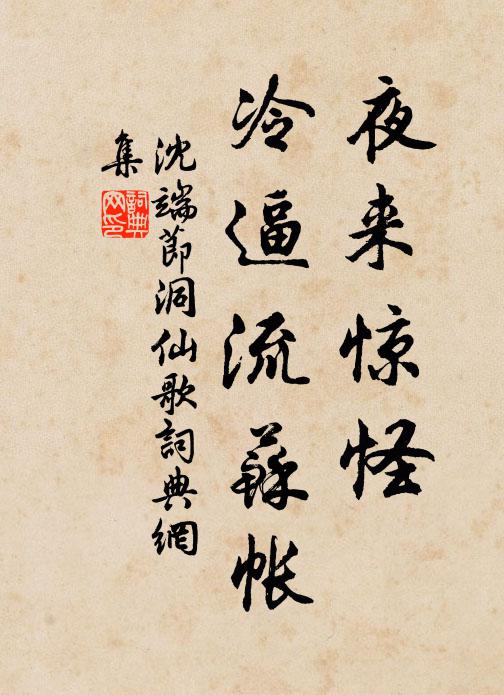 夜来惊怪
冷逼流蘇帐
沈端節洞仙歌詞典網
集
詞典网印